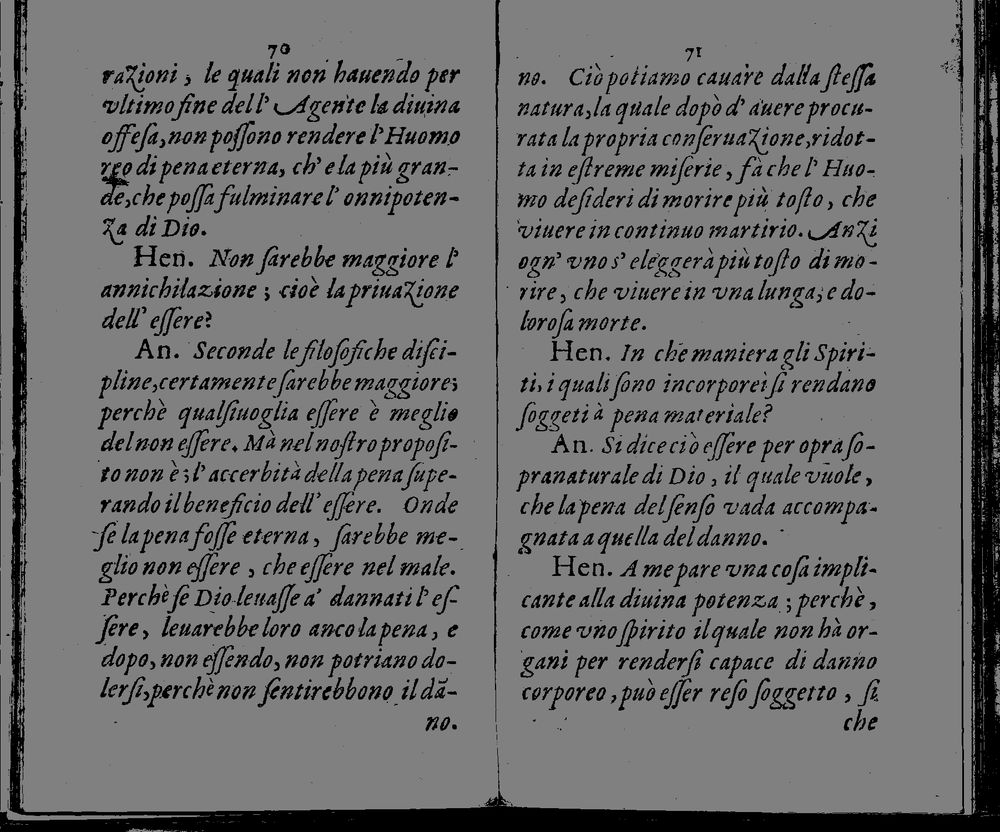 70
razioni, le quali non hauendo per
vltimo fine dell' Agente la diuina
offesa, non possono rendere l' Huomo
reo di pena eterna, ch' e la più gran-
de, che possa fulminare l' onnipoten-
za di Dio.
Hen. Non sarebbe maggiore l'
annichilazione; cioè la priuazione
dell' essere?
An. Seconde le filosofiche disci-
pline, certamente sarebbe maggiore;
perchè qualsiuoglia essere è meglio
del non essere. Mà nel nostro proposi-
to non è; l' accerbità della pena supe-
rando il beneficio dell' essere. Onde
se la pena fosse eterna, sarebbe me-
glio non essere, che essere nel male.
Perchè se Dio leuasse a' dannati l' es-
sere, leuarebbe loro anco la pena, e
dopo, non essendo, non potriano do-
lersi, perchè non sentirebbono il dā-
no.
71
no. Ciò potiamo cauare dalla stessa
natura, la quale dopò d' auere procu-
rata la propria conseruazione, ridot-
ta in estreme miserie, fà che l' Huo-
mo desideri di morire più tosto, che
viuere in continuo martirio. Anzi
ogn' vno s' eleggerà più tosto di mo-
rire, che viuere in vna lunga, e do-
lorosa morte.
Hen. In che maniera gli Spiri-
ti, i quali sono incorporei si rendano
soggeti à pena materiale?
An. Si dice ciò essere per opra so-
pranaturale di Dio, il quale vuole,
che la pena del senso vada accompa-
gnata a quella del danno.
Hen. A me pare vna cosa impli-
cante alla diuina potenza; perchè,
come vno spirito il quale non hà or-
gani per rendersi capace di danno
corporeo, può esser reso soggetto, si
che